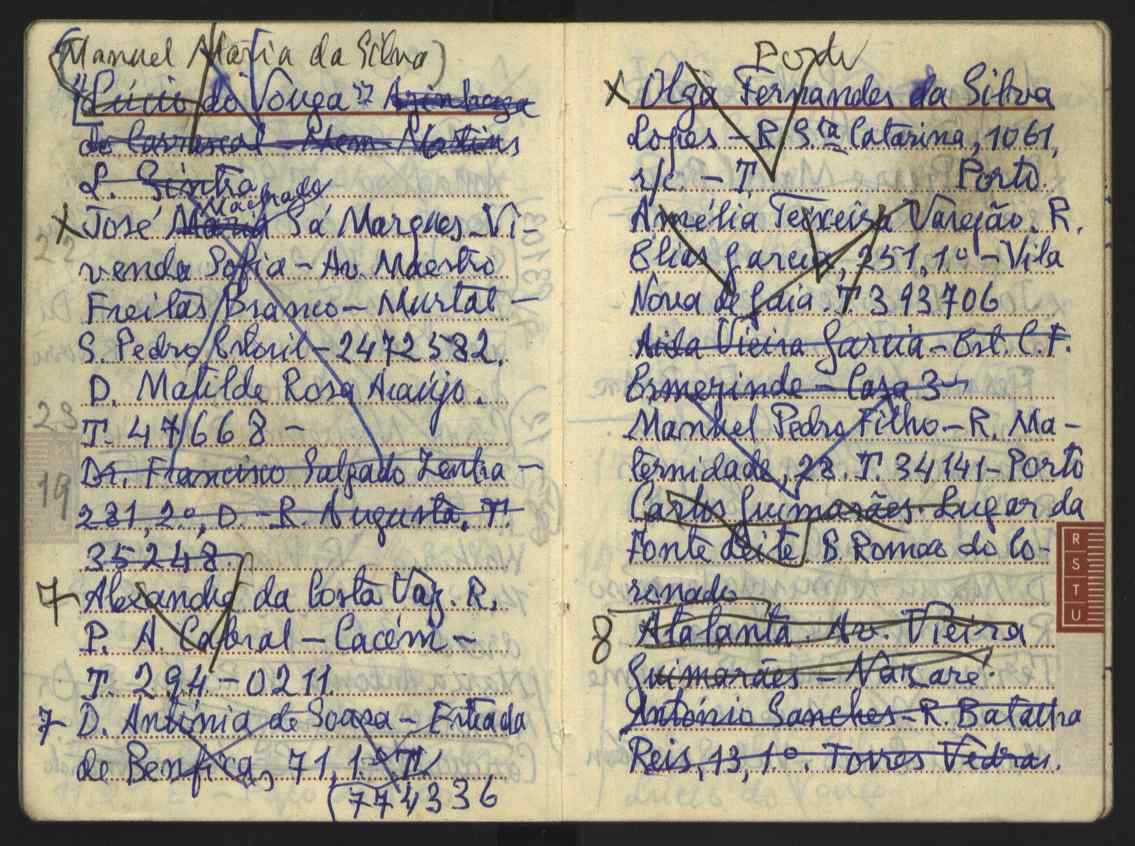 (Manuel Maria da Silva)
"Lúcio do Vouga" Azinhaga
do Carrascal - Mem Martins
L. Sintra
Machado
X José Maria Sá Marques - Vi-
venda Sofia - Av. Maestro
Freitas Branco - Murtal -
S. Pedro Estoril - 2472582.
D. Matilde Rosa Araújo.
T. 47668 -
Dr. Francisco Salgado Zenha -
281, 2º, D. - R. Augusta, T.
35248.
7 Alexandre da Costa Vaz. R.
P. A. Cabral - Cacém -
T. 294-0211
7 D. Antónia de Sousa - Estrada
de Benfica, 71, 1º T.
(774336
22
23
19
Porto
X Olga Fernandes da Silva
Lopes - R. Stª Catarina, 1061,
r/c - T. Porto.
Amélia Teixeira Varejão. R.
Elias Garcia, 251, 1º - Vila
Nova de Gaia. T 393706
Aida Vieira Garcia - Est. C.F.
Ermezinde - Casa 3
Manuel Pedro Filho - R. Ma-
ternidade, 28. T. 34141 - Porto
Carlos Guimarães. Lugar da
Fonte Leite B. Romão do Co-
ronado
8 Atalanta. Av. Vieira
Guimarães - Nazaré.
António Sanches - R. Batalha
Reis, 13, 1.º Torres Vedras.
R
S
T
U